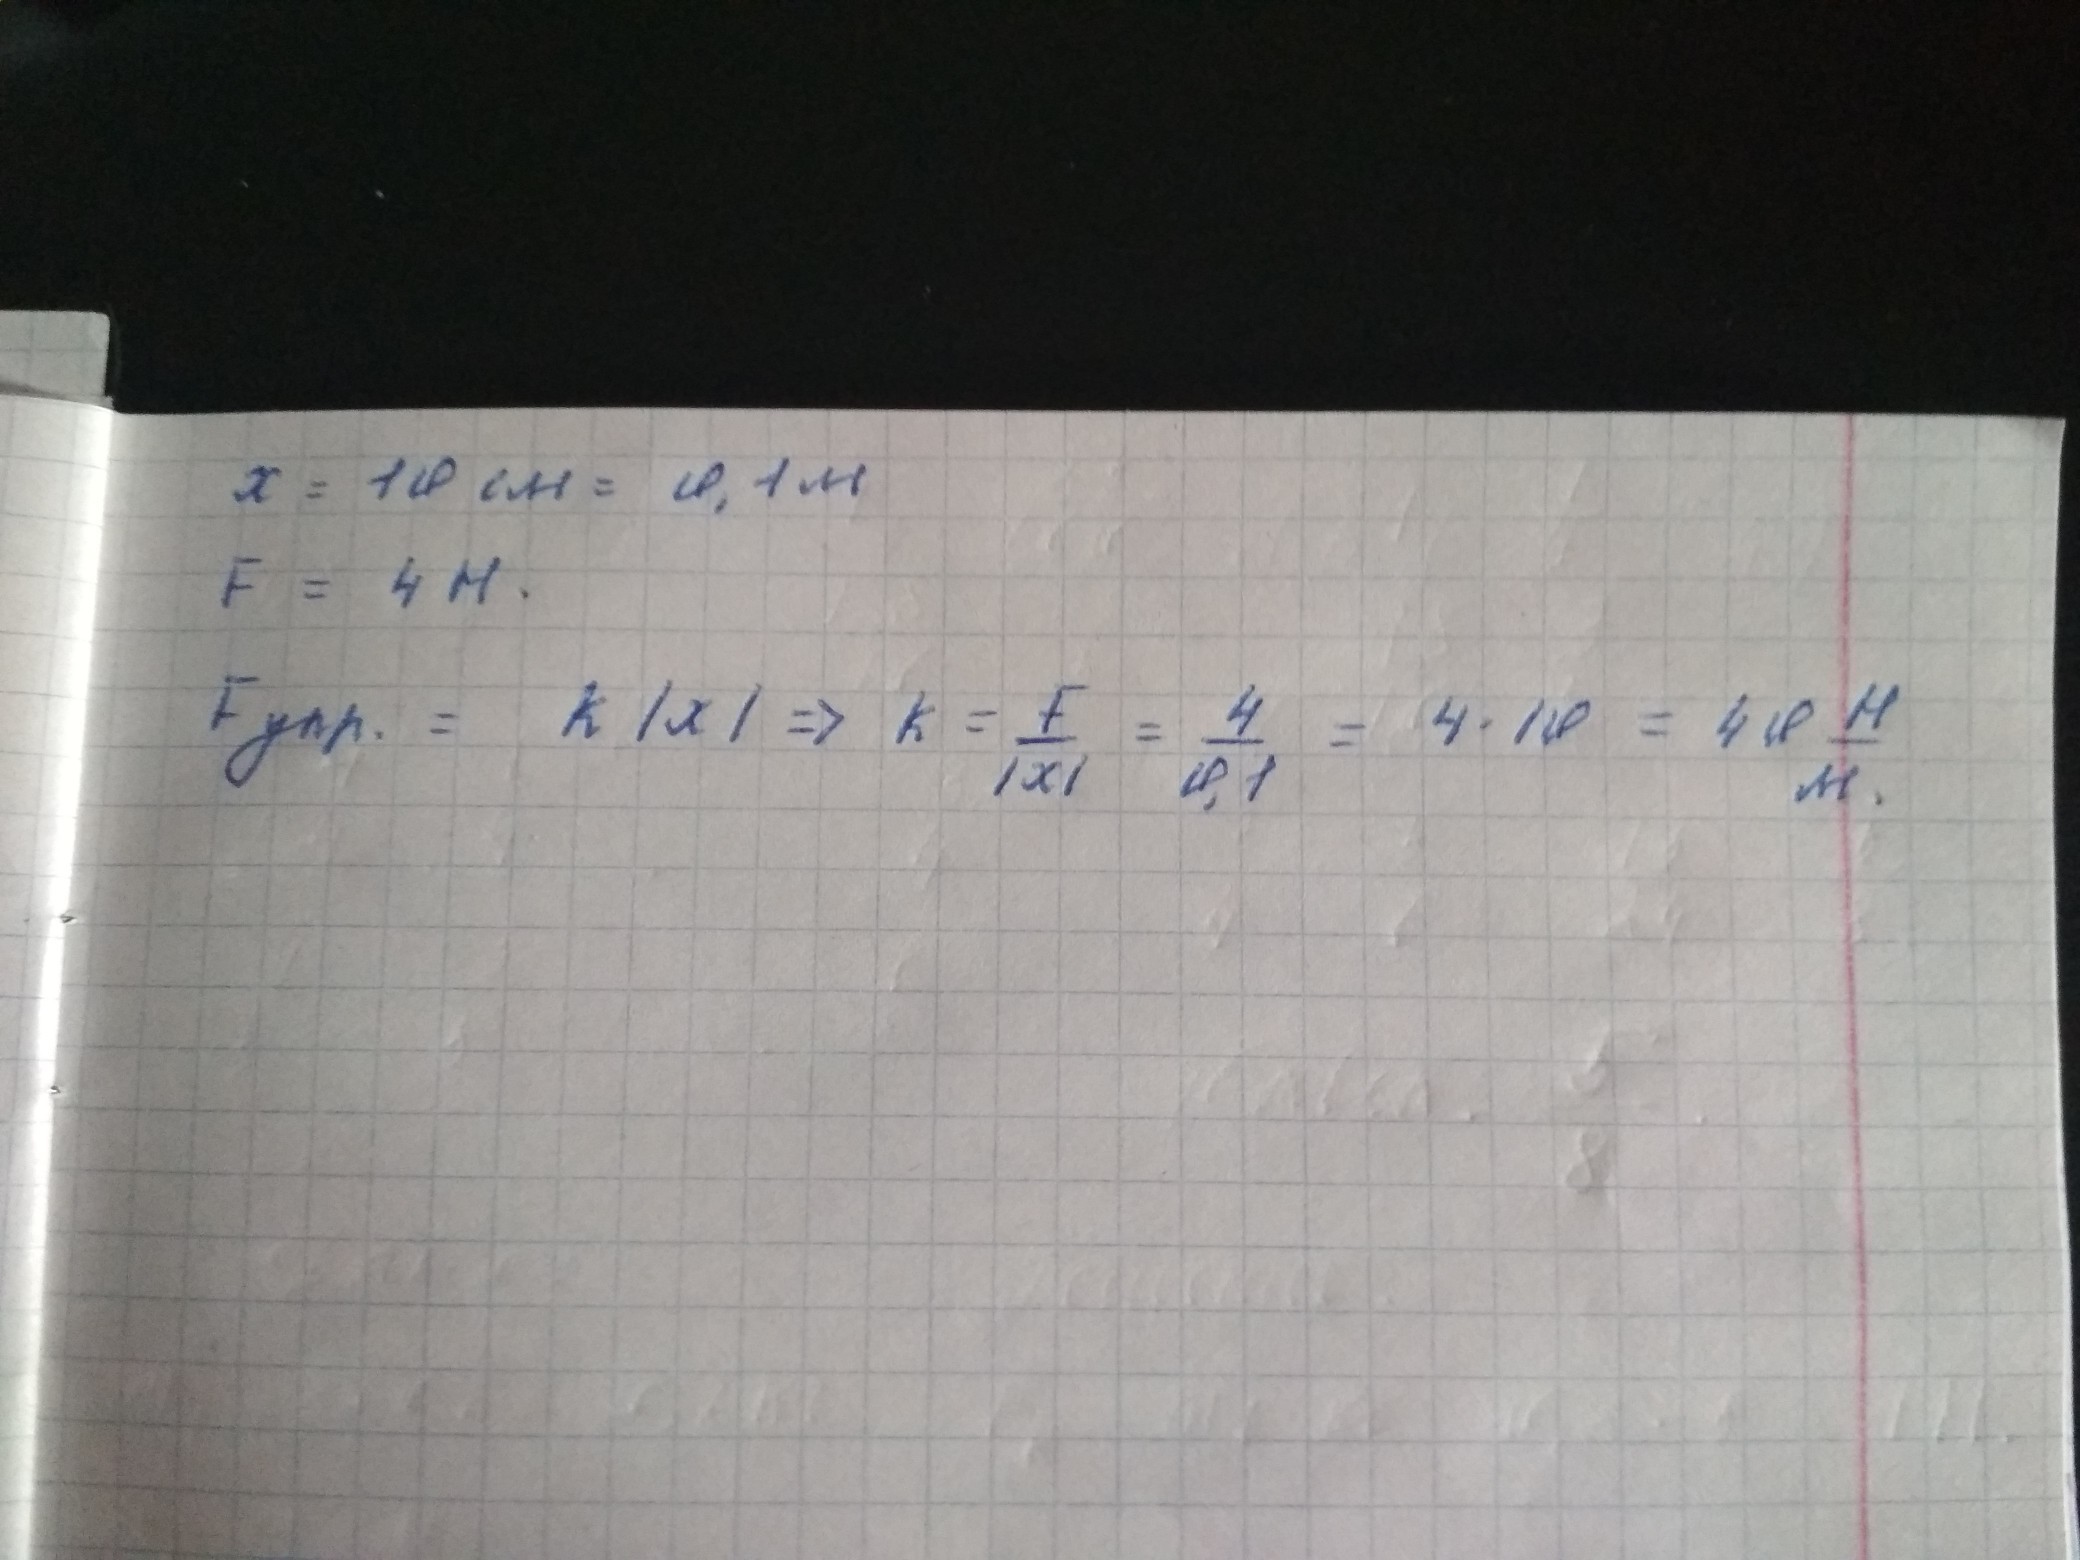 x = 10 см = 0,1 м
F = 4 Н.
Fупр. = k |x| => k = F/|x| = 4/0,1 = 4 · 10 = 40 Н/м.